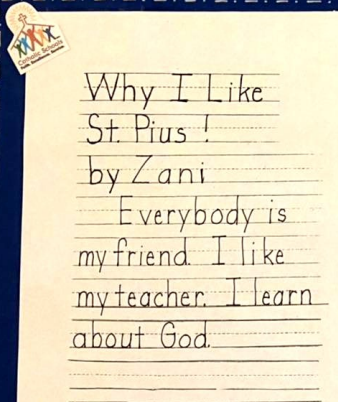 Catholic Schools
Why I Like
St. Pius !
by Zani
Everybody is
my friend. I like
my teacher. I learn
about God.